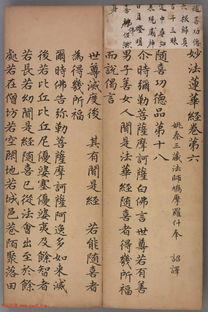 妙法蓮華經卷第六
姚秦三藏法師鳩摩羅什奉 詔譯
隨喜功德品第十八
爾時彌勒菩薩摩訶薩白佛言世尊若有善
男子善女人聞是法華經隨喜者得幾所福
而說偈言
世尊滅度後 其有聞是經 若能隨喜者
為得幾所福
爾時佛告彌勒菩薩摩訶薩阿逸多如來滅
後若比丘比丘尼優婆塞優婆夷及餘智者
若長若幼聞是經隨喜已從法會出至於餘
處若在僧坊若空閑地若城邑巷陌聚落田